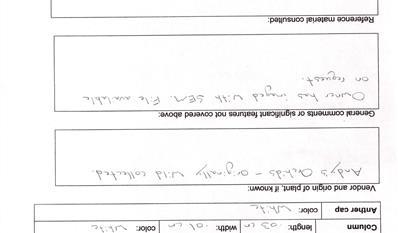 Column length: .03 cm width: .01 cm color: White
Anther cap color: White
Vendor and origin of plant, if known:
Andy's Orchids - Originally wild collected.
General comments or significant features not covered above:
Owner has imaged with SEM. File available
on request.
Reference material consulted: